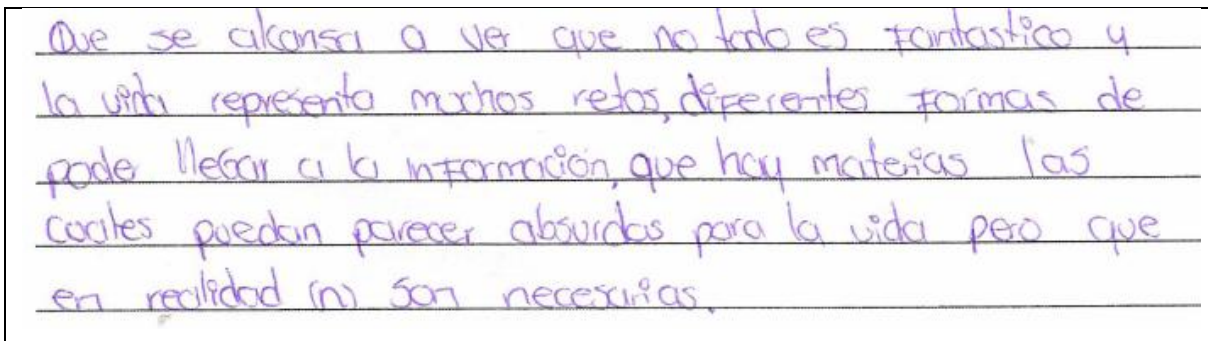 Que se alcansa a ver que no todo es fantastico y
la vida representa muchos retos, diferentes formas de
pode llegar a la información, que hay materias las
cuales puedan parecer absurdas para la vida pero que
en realidad (n) son necesarias.